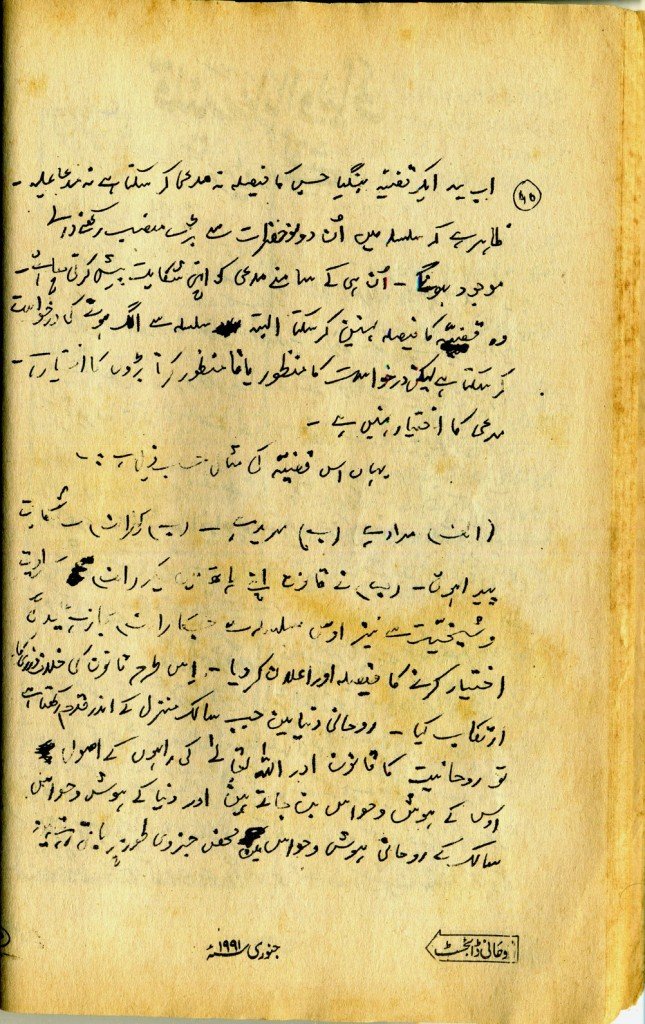 ۴۵
اب یہ ایک قضیّہ بنگیا جس کا فیصلہ نہ مدعی کر سکتا ہے نہ مدعا علیہ ۔
ظاہر ہے کہ سلسلہ میں اُن دونوں حضرات سے بڑے منصب رکھنے والے
موجود ہونگے ۔ اُن ہی کے سامنے مدعی کو اپنی شکایت پیش کرنی چاہئے ۔
وہ قضیّہ کا فیصلہ نہیں کر سکتا البتہ سلسلہ سے الگ ہونے کی درخواست
کر سکتا ہے لیکن درخواست کا منظور یا نامنظور کرنا بڑوں کا اختیار ہے ۔
مدعی کا اختیار نہیں ہے ۔
یہاں اس قضیّہ کی مثال حسب ذیل ہے :۔
(الف) مراد ہے (ب) مرید ہے ۔ (ب) کو (الف) سے شکایت
پیدا ہوئی ۔ (ب) نے قانون اپنے ہاتھ میں لیکر (الف)
و شیخیّت سے نیز اوس سلسلہ سے جسکا (الف) مجاز ہے علیٰحدگی
اختیار کرنے کا فیصلہ اور اعلان کر دیا ۔ اِس طرح قانون کی خلاف ورزی کا
ارتکاب کیا ۔ روحانی دنیا میں جب سالک منزل کے اندر قدم رکھتا ہے
تو روحانیت کا قانون اور اللہ تعالیٰ کی راہوں کے اصول
اوس کے ہوش و حواس بن جاتے ہیں اور دنیا کے ہوش و حواس
سالک کے روحانی ہوش و حواس میں محض جزوی طور پر باقی رہتے ہیں
روحانی ڈائجسٹ
جنوری ۱۹۹۱ء